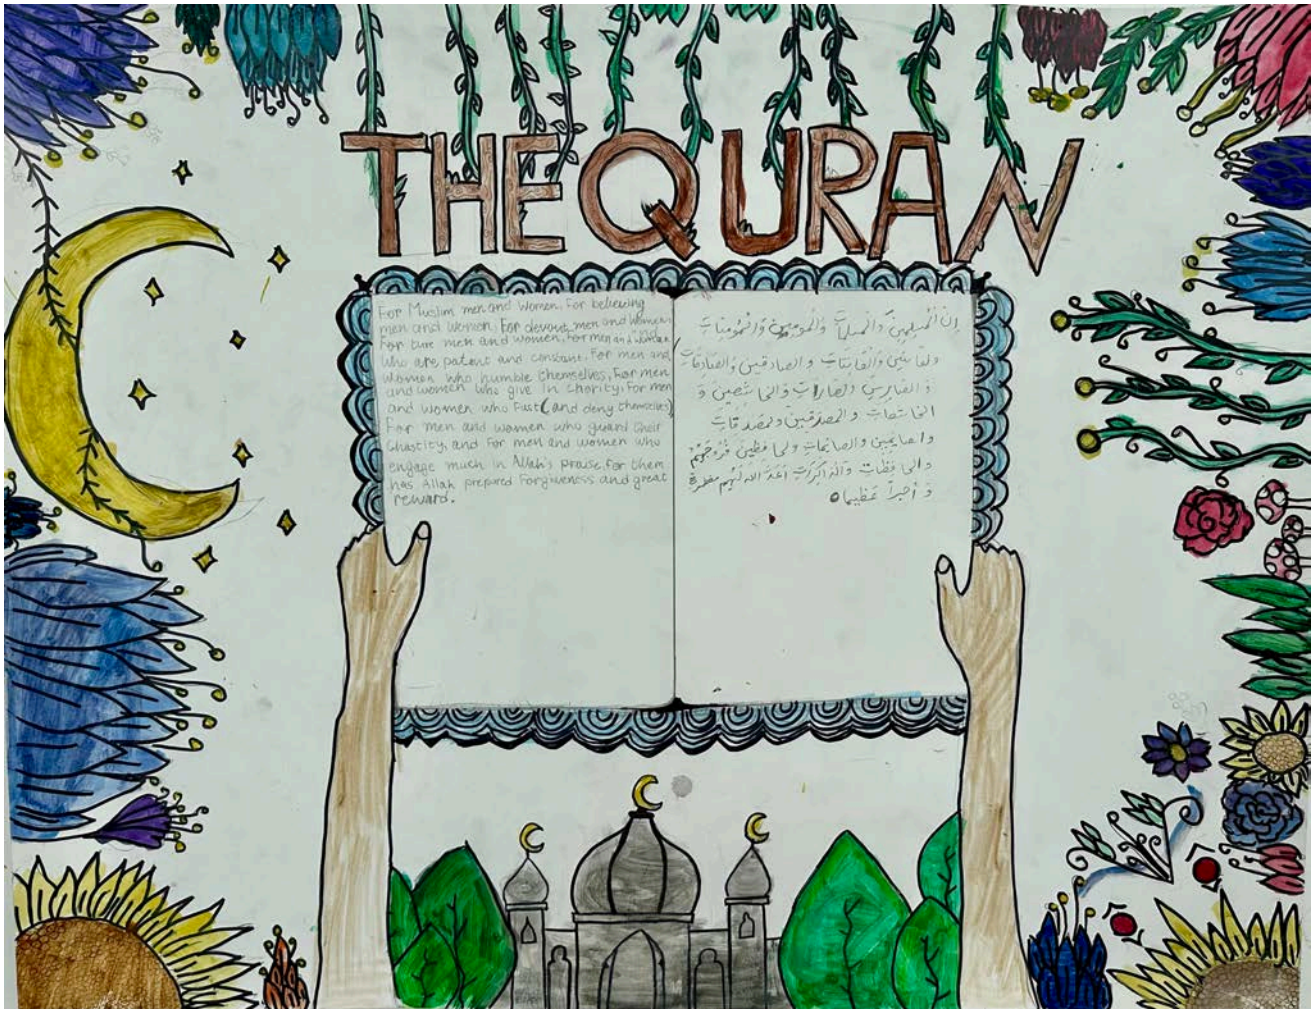 THE QURAN
For Muslim men and women, For believing
men and women, For devout men and women
For ture men and women, For men and women
who are patent and constant, For men and
women who humble themselves, For men
and women who give in charity, For men
and women who Fust (and deny themselves)
For men and women who guard their
Chastity, and For men and women who
engage much in Allah's praise, For them
has Allah prepared Forgiveness and great
reward.
إن المسلمين والمسلمات والمؤمنين والمؤمنات
والقانتين والقانتات و الصادقين والصادقات
و الصابرين الصابرات والخاشعين و
الخاشعات والمصدقين ولمصدقات
والصايمين والصايمات ولحافظين فروجهم
والحافظات والذاكرات أعد الله لهم مغفرة
و أجراً عظيما